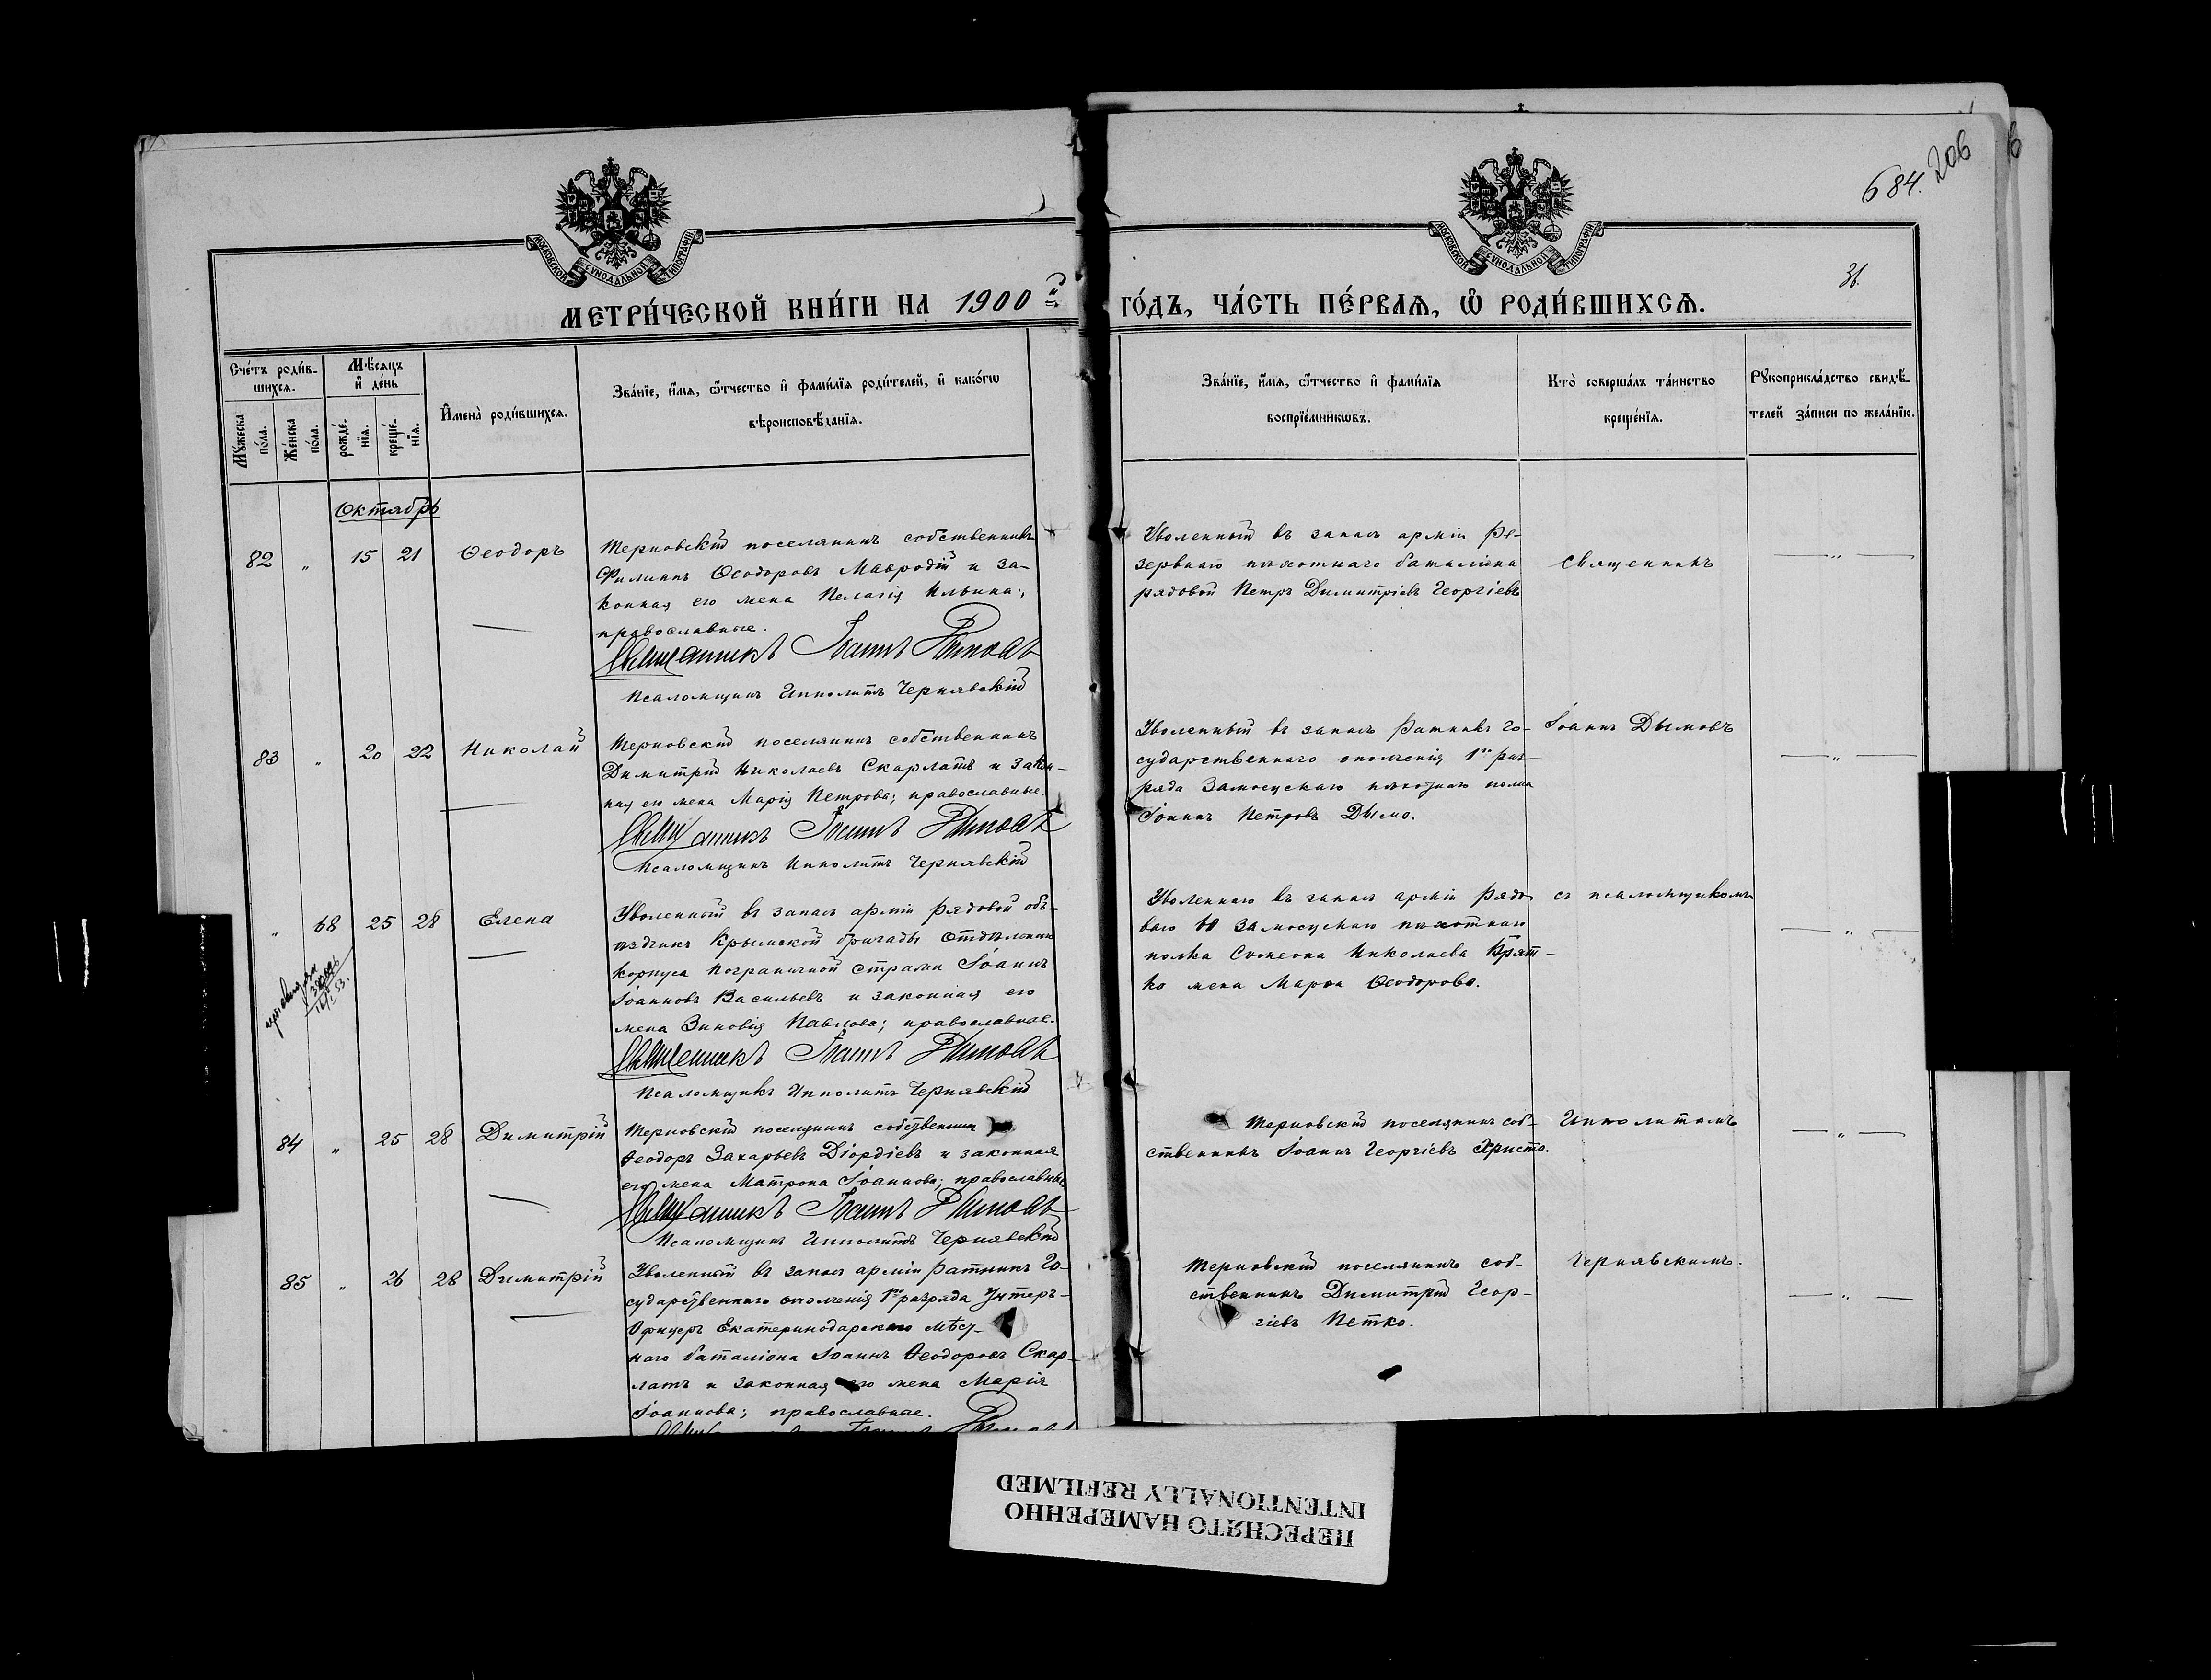 684. 206
МОСКОВСКОЙ СѴНОДАЛЬНОЙ ТИПОГРАФІИ
МОСКОВСКОЙ СѴНОДАЛЬНОЙ ТИПОГРАФІИ
31.
МЕТРИ́ЧЕСКОЙ КНИ́ГИ НА 1900й ГО́ДЪ, ЧА́СТЬ ПЕ́РВАѦ, Ѡ РОДИ́ВШИХСѦ.
Сче́тъ роди́в-
шихсѧ.
Мꙋ́жеска по́ла.
Же́нска по́ла.
Мѣ́сѧцъ
и҆ де́нь
рожде́-
нїѧ.
креще́-
нїѧ.
И҆мена̀ роди́вшихсѧ.
Зва́нїе, и҆́мѧ, ѻ҆́тчество и҆ фами́лїѧ роди́телей, и҆ како́гѡ
вѣроисповѣ́данїѧ.
Зва́нїе, и҆́мѧ, ѻ҆́тчество и҆ фами́лїѧ
воспрїе́мникѡвъ.
Кто̀ соверша́лъ та́инство
креще́нїѧ.
Рꙋкоприкла́дство свидѣ́-
телей за́писи по жела́нїю.
Октябрь
82 „ 15 21 Ѳеодоръ
Терновскій поселянинъ собственникъ
Филиппъ Ѳеодоровъ Мавродій и за-
конная его жена Пелагія Ильина;
православные.
Священникъ Іоаннъ Дымовъ
Псаломщикъ Ипполитъ Чернявскій
Уволенный въ запасъ арміи Ре-
зервнаго пѣхотнаго баталіона
рядовой Петръ Димитріевъ Георгіевъ
Священникъ
83 „ 20 22 Николай
Терновскій поселянинъ собственникъ
Димитрій Николаевъ Скарлатъ и закон-
ная его жена Марія Петрова; православные.
Священникъ Іоаннъ Дымовъ
Псаломщикъ Ипполитъ Чернявскій
Уволенный въ запасъ ратникъ го-
сударственнаго ополченія 1го раз-
ряда Замосцскаго пѣхотнаго полка
Іоаннъ Петровъ Дымо.
Іоаннъ Дымовъ
„ 68 25 28 Елена
Уволенный въ запасъ арміи рядовой объ-
ѣздчикъ Крымской бригады отдѣльнаго
корпуса пограничной стражи Іоаннъ
Іоанновъ Васильевъ и законная его
жена Зиновія Павлова; православные.
Священникъ Іоаннъ Дымовъ
Псаломщикъ Ипполитъ Чернявскій
Уволеннаго въ запасъ арміи рядо-
ваго Замосцскаго пѣхотнаго
полка Симеона Николаева Крат-
ко жена Марѳа Ѳеодорова.
съ псаломщикомъ
84 „ 25 28 Димитрій
Терновскій поселянинъ собственникъ
Ѳеодоръ Захарьевъ Діордіевъ и законная
его жена Матрона Іоаннова; православные
Священникъ Іоаннъ Дымовъ
Псаломщикъ Ипполитъ Чернявскій
Терновскій поселянинъ соб-
ственникъ Іоаннъ Георгіевъ Христо.
Ипполитомъ
85 „ 26 28 Димитрій
Уволенный въ запасъ арміи ратникъ го-
сударственнаго ополченія 1го разряда Унтеръ-
Офицеръ Екатеринодарскаго мѣст-
наго баталіона Іоаннъ Ѳеодоровъ Скар-
латъ и законная его жена Марія
Іоаннова; православные.
Терновскій поселянинъ соб-
ственникъ Димитрій Геор-
гіевъ Петко.
Чернявскимъ.
ПЕРЕСНЯТО НАМЕРЕННО
INTENTIONALLY REFILMED